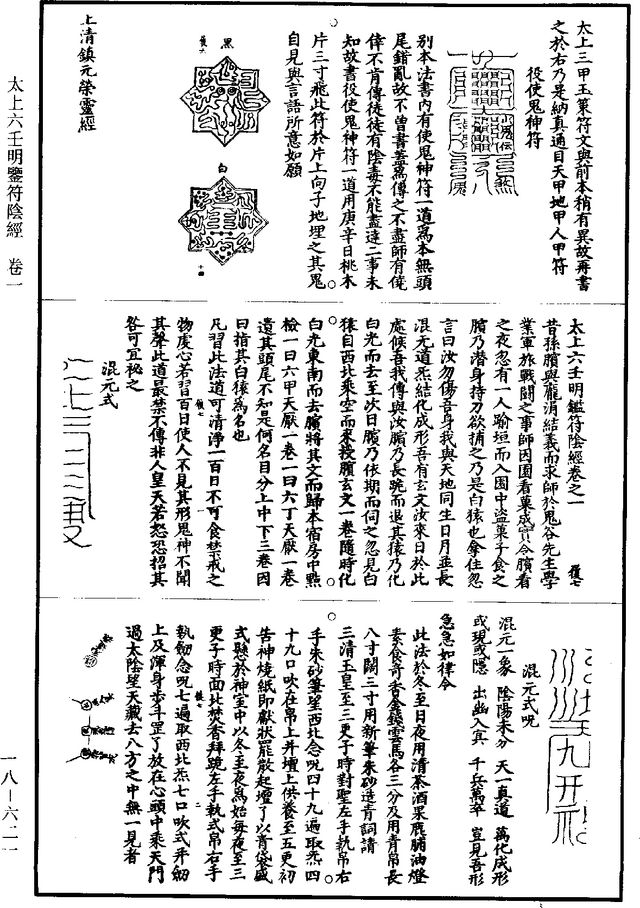 太上三甲玉策符文與前本稍有異故再書
之於右乃是納真通目天甲地甲人甲符
役使鬼神符
別本法書內有使鬼神符一道為本無頭
尾錯亂故不曾書蓋為傳之不盡師有僥
倖不肯傳徒徒有陰毒不能盡達二事未
知故書役使鬼神符一道用庚辛日桃木
片三寸飛此符於片上向子地埋之其鬼
自見與言語所意如願
黑
白
上清鎮元榮靈經
太上六壬明鑑符陰經卷之一
昔孫臏與龐涓結義而求師於鬼谷先生學
業軍旅戰鬬之事師因園看菓成實令臏看
之夜忽有一人踰垣而入園中盜菓子食之
臏乃潛身持刀欲捕之乃是白猿也拿住忽
言曰汝勿傷吾身我與天地同生日月並長
混元道炁結化成形吾有玄文汝來日於此
處候吾我傳與汝臏乃長跪而退其猿乃化
白光而去至次日臏乃依期而伺之忽見白
猿自西北乘空而來授臏玄文一卷隨時化
白光東南而去臏將其文而歸本宿房中點
檢一曰六甲天厭一卷一曰六丁天厭一卷
遺其頭尾不知是何名目分上中下三卷因
曰指其白猿為名也
凡習此法道可清淨一百日不可食禁戒之
物虔心若習百日使人不見其形鬼神不聞
其聲此道最禁不傳非人皇天若怒恐招其
咎可宜秘之
混元式
混元式呪
混元一象 陰陽未分 天一真道 萬化成形
或現或隱 出幽入冥 千兵萬卒 豈見吾形
急急如律令
此法於冬至日夜用清茶酒果鹿脯油燈
素食奇香金錢雲馬各三分及用青帛長
八寸闊三寸用新筆朱砂造青詞請
三清玉皇至三更子時對聖左手執帛右
手朱砂筆望西北念呪四十九遍取炁四
十九口吹在帛上并壇上供養至五更初
告神燒紙即獻狀罷散起壇了以青袋盛
式懸於神室中以冬至夜為始每夜至三
更子時面北焚香拜跪左手執式帛右手
執劒念呪七遍取西北炁七口吹式并劒
上及渾身步斗罡了放在心頭中乘天門
過太陰望天藏去八方之中無一見者
太上六壬明鑒符陰經 卷一
一八—六二一